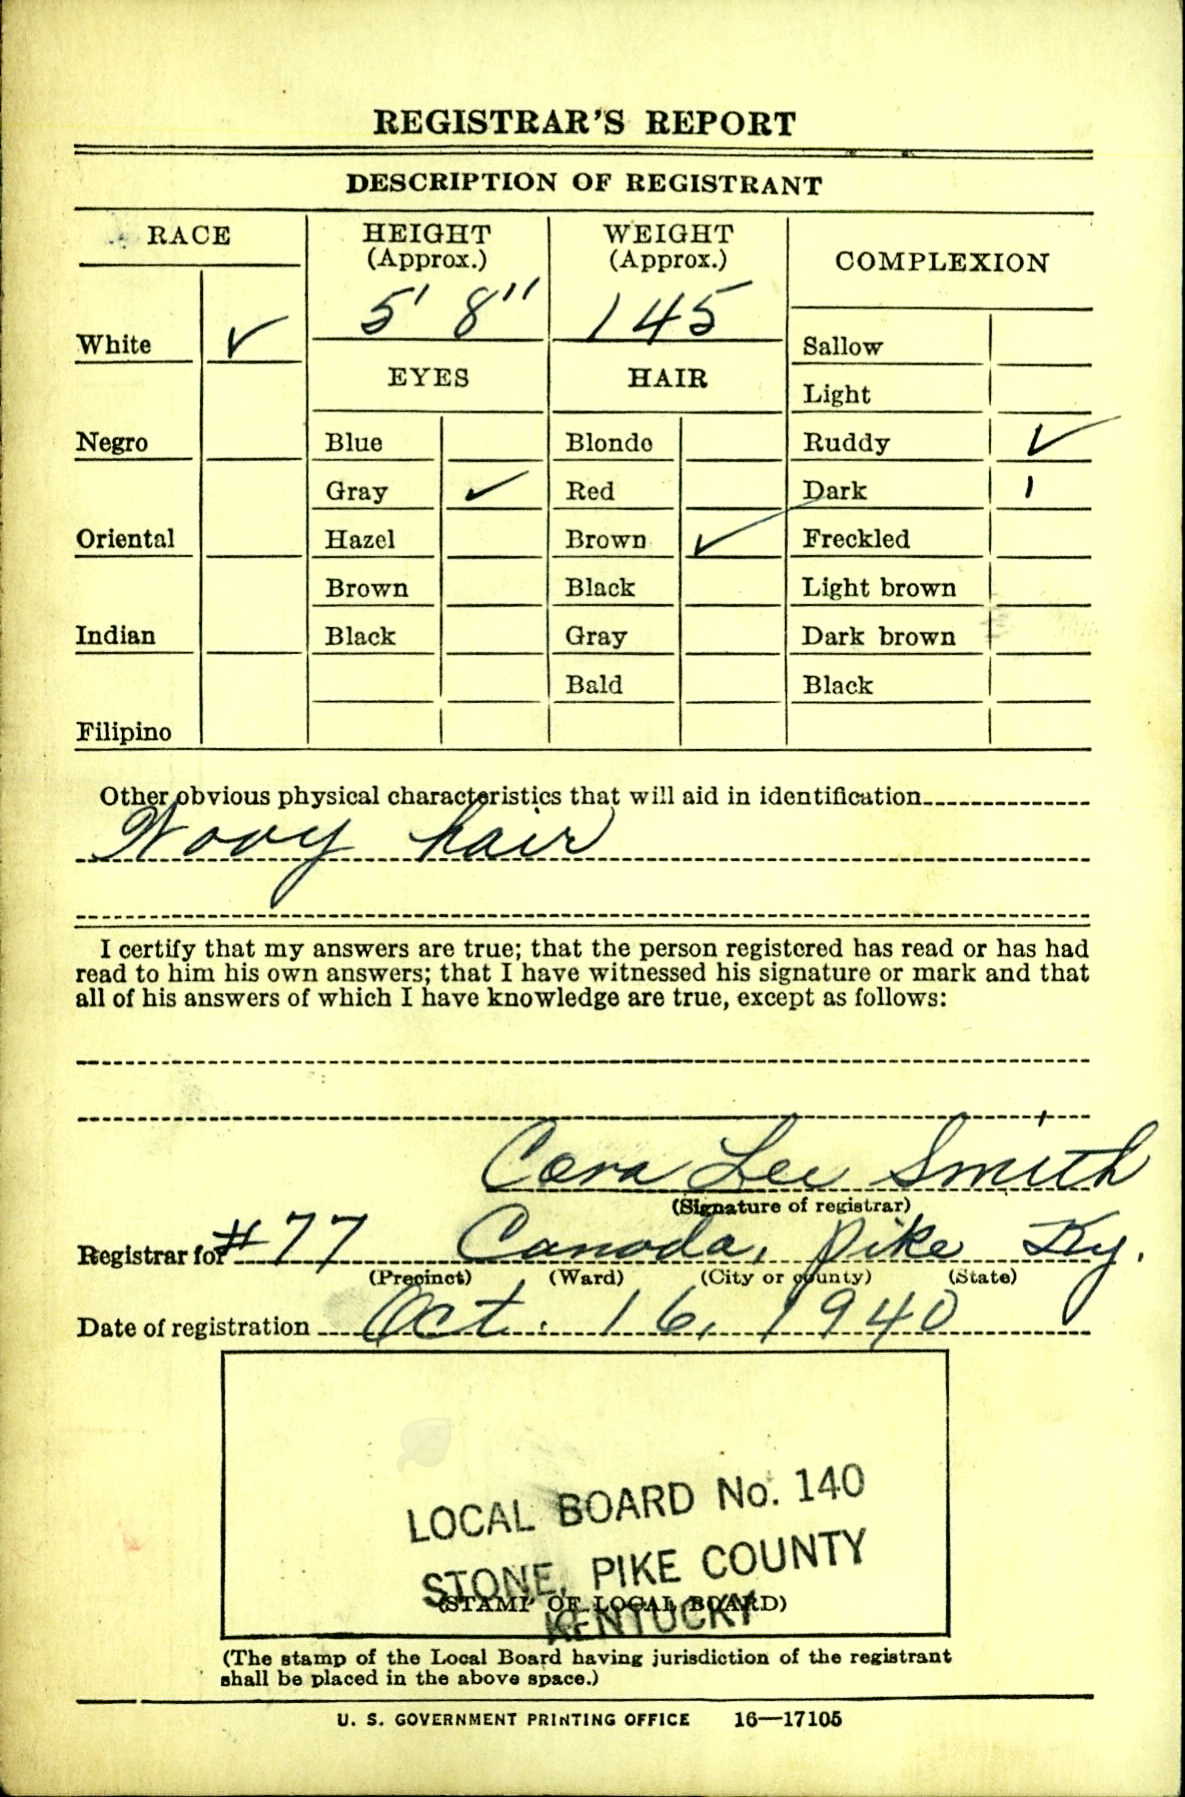 REGISTRAR'S REPORT
DESCRIPTION OF REGISTRANT
RACE
HEIGHT
(Approx.)
WEIGHT
(Approx.)
COMPLEXION
5' 8"
145
White ✓
Sallow
EYES
HAIR
Light
Negro
Blue
Blonde
Ruddy ✓
Gray ✓
Red
Dark
Oriental
Hazel
Brown ✓
Freckled
Brown
Black
Light brown
Indian
Black
Gray
Dark brown
Bald
Black
Filipino
Other obvious physical characteristics that will aid in identification
Wavy hair
I certify that my answers are true; that the person registered has read or has had
read to him his own answers; that I have witnessed his signature or mark and that
all of his answers of which I have knowledge are true, except as follows:
Cora Lee Smith
(Signature of registrar)
Registrar for #77 Canada, Pike Ky.
(Precinct) (Ward) (City or county) (State)
Date of registration Oct. 16, 1940
LOCAL BOARD No. 140
STONE, PIKE COUNTY
KENTUCKY
(STAMP OF LOCAL BOARD)
(The stamp of the Local Board having jurisdiction of the registrant
shall be placed in the above space.)
U. S. GOVERNMENT PRINTING OFFICE 16—17105